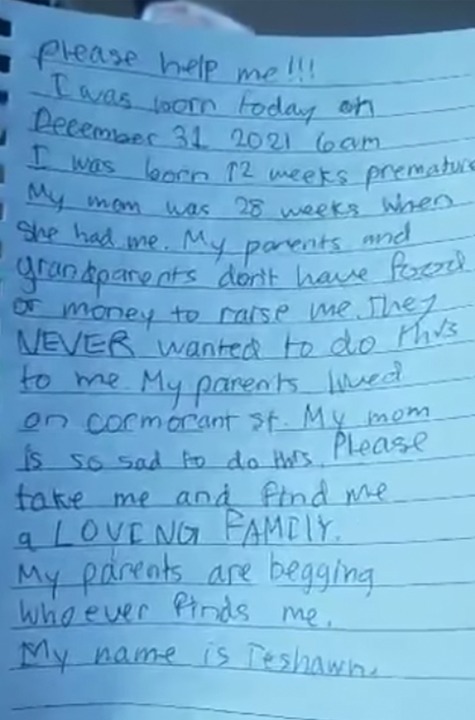 please help me!!!
I was born today on
December 31 2021 6am
I was born 12 weeks premature
My mom was 28 weeks when
she had me. My parents and
grandparents dont have food
or money to raise me. They
NEVER wanted to do this
to me My parents lived
on cormorant st. My mom
is so sad to do this. Please
take me and find me
a LOVING FAMILY.
My parents are begging
whoever finds me.
My name is Teshawn.